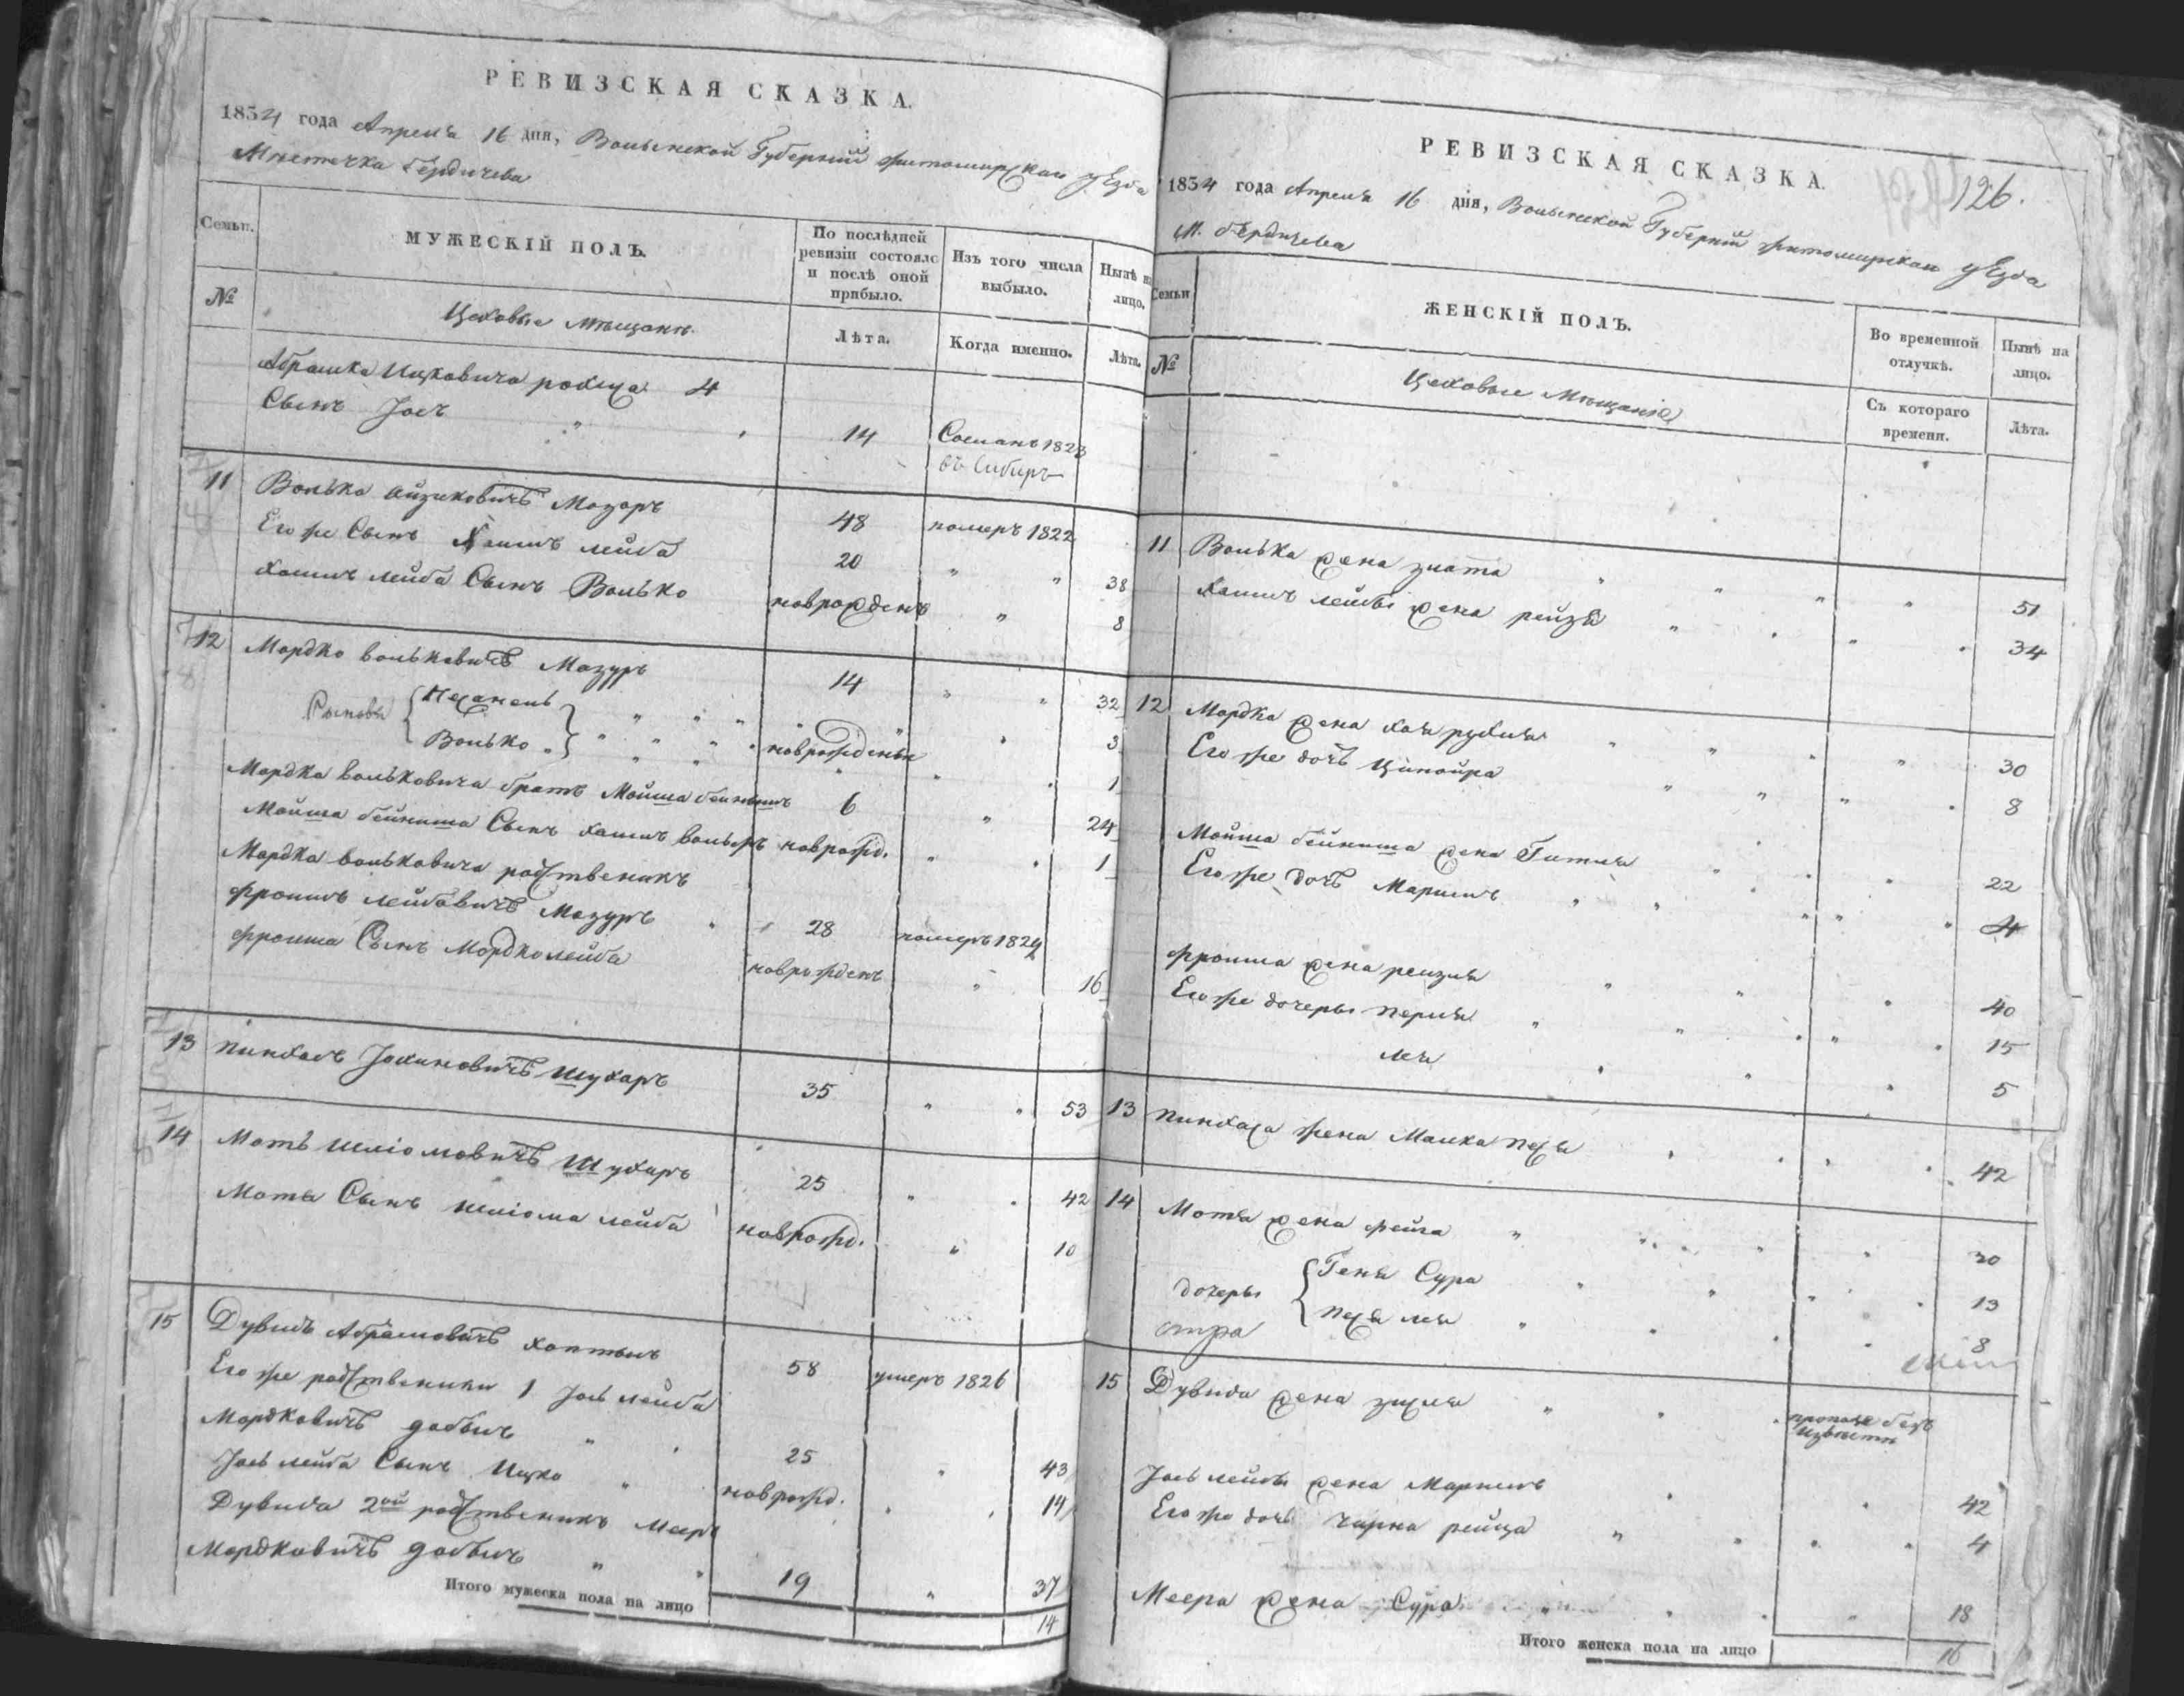 РЕВИЗСКАЯ СКАЗКА.
1834 года Апреля 16 дня, Волынской Губерніи Житомирскаго уезда
Местечка Бердичева
Семьи.
МУЖЕСКІЙ ПОЛЪ.
По послѣдней ревизіи состояло и послѣ оной прибыло.
Изъ того числа выбыло.
Нынѣ на лицо.
№
Цеховые Мещане
Лѣта.
Когда именно.
Лѣта.
Абрамка Ицковича 4
Сынъ Іось " 14 Сосланъ 1823
въ Сибирь
11 Волька Айзиковичъ Мазуръ 48 померъ 1822
Его же Сынъ Хаимъ Лейба 20 " " 38
Хаимъ Лейба Сынъ Волько новорожденъ " 8
12 Мордко Вольковичъ Мазуръ 14 " " 32
Сыновья
Волько новорожденъ 3
1
Мордка Вольковича братъ Мойша Бейнишъ 6 " 24
Мойша Бейниша Сынъ Хаимъ Вольфъ новорожд. " 1
Мордка Вольковича родственикъ
Фроимъ Лейбовичъ Мазуръ 28 померъ 1824
Фроима Сынъ Мордко Лейба новорожденъ " 16
13 Пинхасъ Шухаръ 35 " " 53
14 Моть Шліомовичъ Шухаръ 25 " 42
Мотя Сынъ Шліома Лейба новорожд. " 10
15 Дувидъ Абрамовичъ 58 умеръ 1826
Его же родственики 1 Іось Лейба
Мордковичъ 25 " 43
Іось Лейба Сынъ Ицко " новорожд. 14
Дувида 2ой родственикъ Мееръ
Мордковичъ " 19 " 37
Итого мужеска пола на лицо 14
РЕВИЗСКАЯ СКАЗКА.
126.
1834 года Апреля 16 дня, Волынской Губерніи Житомирскаго уезда
М. Бердичева
Семьи
ЖЕНСКІЙ ПОЛЪ.
Во временной отлучкѣ.
Нынѣ на лицо.
№
Цеховые Мещане
Съ котораго времени.
Лѣта.
11 Волька жена Злата 51
Хаимъ Лейбы жена Рейзя 34
12 Мордка жена Хая Рухля 30
Его же дочь Ципойра 8
Мойша Бейниша жена Гитля 22
Его же дочь Маріимъ 4
Фроима жена Рейзля 40
Его же дочеры Перля 15
Лея 5
13 Пинхаса жена Малка Песя 42
14 Мотя жена Фейга 30
дочеры
Геня Сура 13
Песя Лея 8
15 Дувида жена пропала безъ
извести
Іось Лейбы жена Маріимъ 42
Его же дочь Чарна Рейца 4
Меера жена Сура 18
Итого женска пола на лицо 16